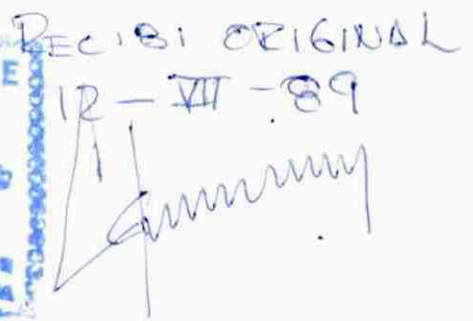 RECIBI ORIGINAL
12 - VII - 89